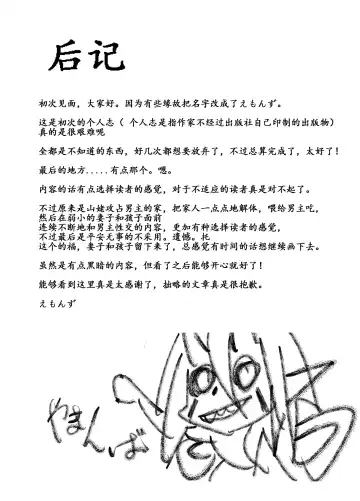 后记
初次见面，大家好。因为有些缘故把名字改成了えもんず。
这是初次的个人志（ 个人志是指作家不经过出版社自己印制的出版物）
真的是很艰难呢
全都是不知道的东西，好几次都想要放弃了，不过总算完成了，太好了！
最后的地方.....有点那个。嗯。
内容的话有点选择读者的感觉，对于不适应的读者真是对不起了。
不过原来是山姥攻占男主的家，把家人一点点地解体，喂给男主吃，
然后在弱小的妻子和孩子面前
连续不断地和男主性交的内容，更加有种选择读者的感觉，
不过最后是平安无事的不采用。遗憾。托
这个的福，妻子和孩子留下来了，总感觉有时间的话想继续画下去。
虽然是有点黑暗的内容，但看了之后能够开心就好了！
能够看到这里真是太感谢了，拙略的文章真是很抱歉。
えもんず
やまんば